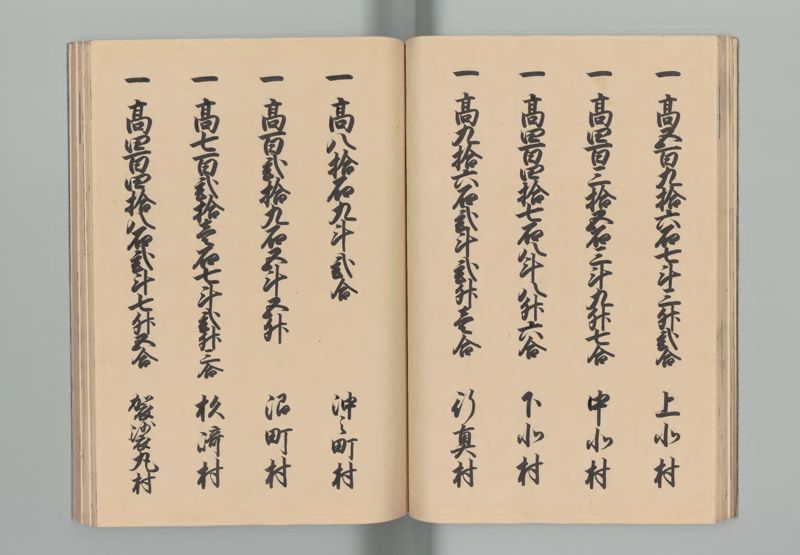 一 高五百九拾六石七斗三升弐合 上小村
一 高四百三拾五石三斗九升七合 中小村
一 高四百四拾七石八斗八升六合 下小村
一 高九拾六石弐斗弐升壱合 行真村
一 高八拾石九斗弐合 沖之町村
一 高百弐拾九石五斗五升 沼町村
一 高七百弐拾壱石七斗弐升二合 杉濟村
一 高四百四拾八石弐斗七升五合 袈裟丸村